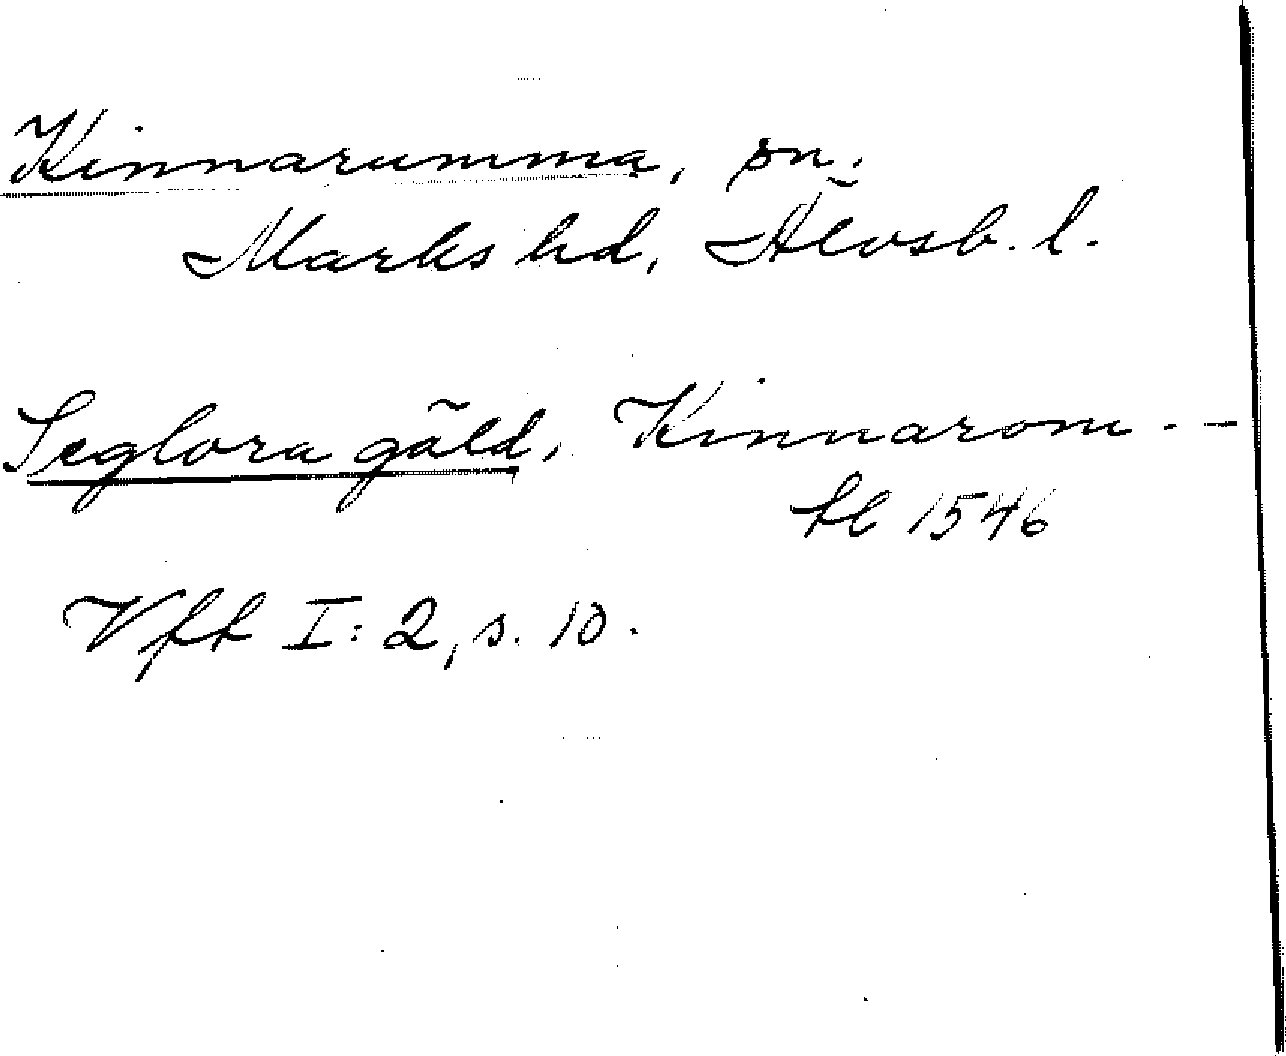 Kinnarumma, sn.
Marks hd, Älvsb. l.
Seglora gäld, Kinnarom - -
tl 1546
Vff I: 2, s. 10.